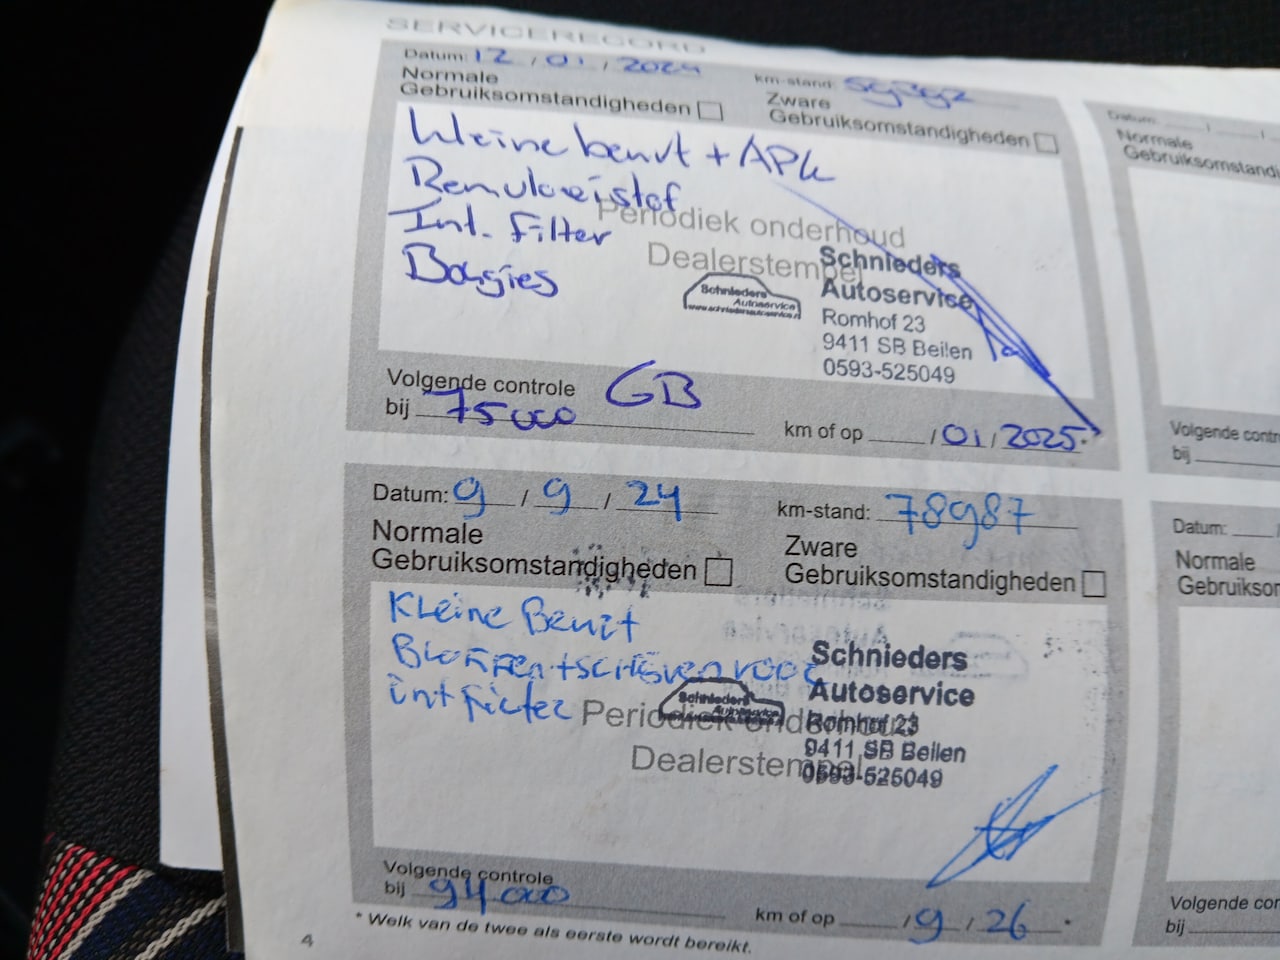 SERVICERECORD
Datum: 12 / 01 / 2024
km-stand:
Normale
Gebruiksomstandigheden
Zware
Gebruiksomstandigheden
Kleine beurt + APK
Remvloeistof
Int. Filter
Bougies
Periodiek onderhoud
Dealerstempel
Schnieders
Autoservice
Schnieders
Autoservice
Romhof 23
9411 SB Beilen
0593-525049
Volgende controle GB
bij 75000 km of op / 01 / 2025
Datum: 9 / 9 / 24
km-stand: 78987
Normale
Gebruiksomstandigheden
Zware
Gebruiksomstandigheden
Kleine Beurt
Blokken + schijven voor
int filter
Periodiek onderhoud
Dealerstempel
Schnieders
Autoservice
Schnieders
Autoservice
Romhof 23
9411 SB Beilen
0593-525049
Volgende controle
bij 94000 km of op / 9 / 26 *
* Welk van de twee als eerste wordt bereikt.
4
Datum: / /
Normale
Volgende
bij
Datum:
Normale
Volgende
bij